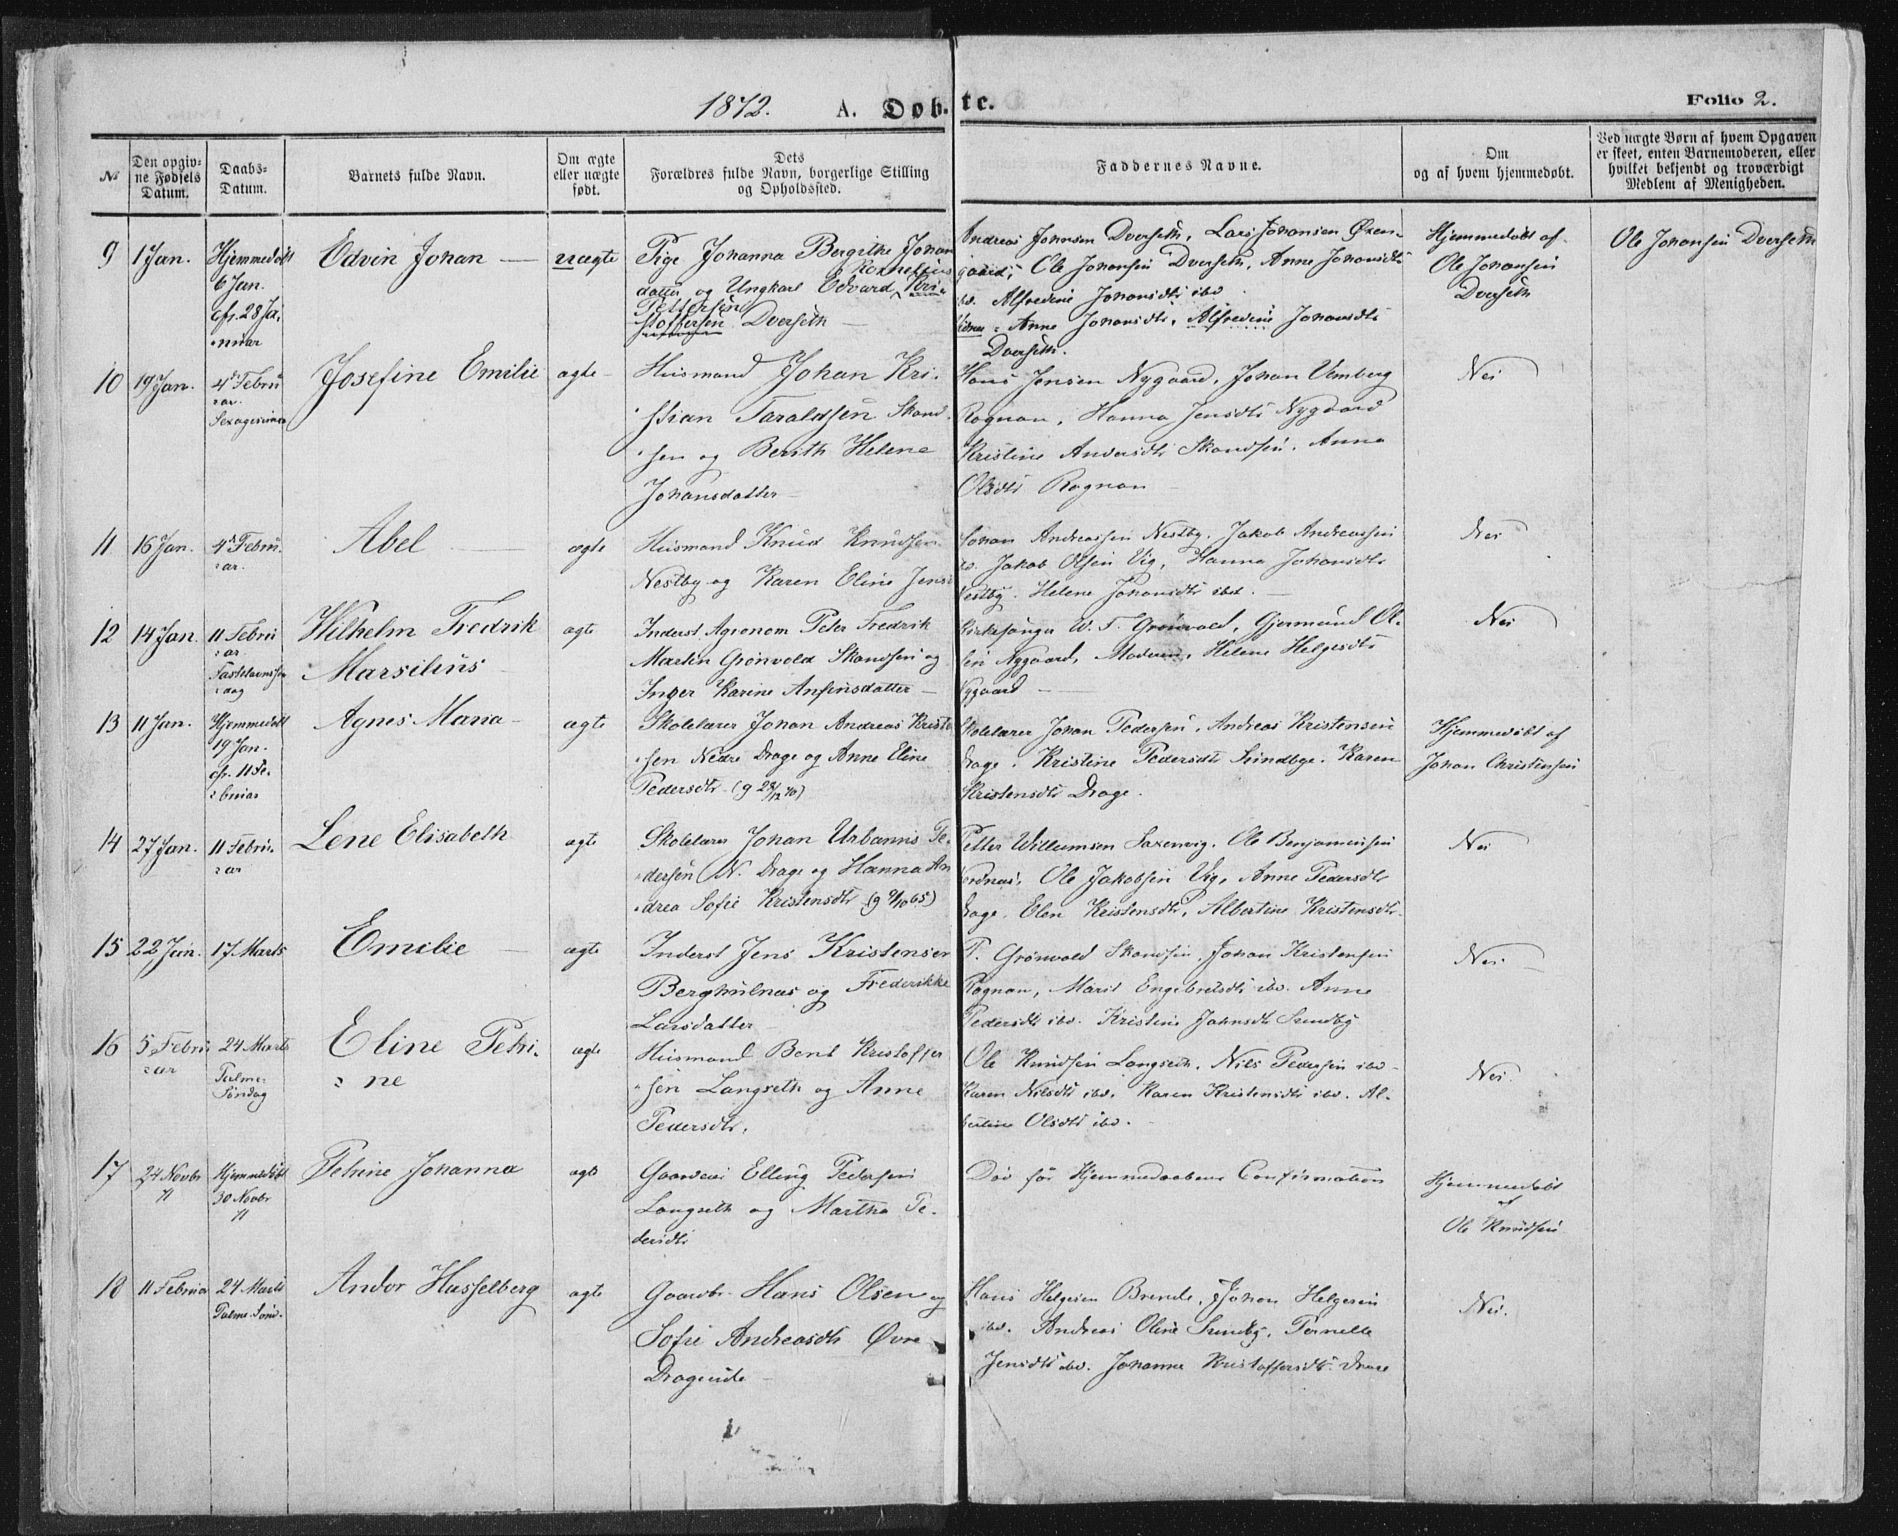 1872. A. Døbte. Folio 2.
№
Den opgiv-
ne Fødsels
Datum.
Daabs-
Datum.
Barnets fulde Navn.
Om ægte
eller uægte
født.
Dets
Forældres fulde Navn, borgerlige Stilling
og Opholdssted.
Faddernes Navne.
Om
og af hvem hjemmedøbt.
Ved uægte Børn af hvem Opgaven
er skeet, enten Barnemoderen, eller
hvilket bekjendt og troværdigt
Medlem af Menigheden.
9
1 Jan.
Hjemmedøbt
6 Jan.
cfr. 28 Ja-
nuar
Edvin Johan
uægte
Pige Johanna Bergitke Johan
Kornelius
datter og Ungkarl Edvard Kri-
Pettersen
stoffersen Dverseth
Andreas Johnsen Dverseth, Lars Johansen Øxen-
gaard, Ole Johansen Dverseth, Anne Johansdtr
ibd. Alfredine Johansdtr ibd
Anne Johansdtr, Alfredine Johansdtr
Dverseth.
Hjemmedøbt af
Ole Johansen
Dverseth
Ole Johansen Dverseth
10
19 Jan.
4de Febru
ar.
Sexagesima
Josefine Emilie
ægte
Huismand Johan Kri-
stian Taraldsen Skand-
sen og Berith Helene
Johansdatter
Hans Jensen Nygaard, Johan Vemberg
Rognan, Hanna Jensdtr Nygaard
Kristine Andersdtr Skandsen, Anna
Olsdtr Rognan
Nei
11
16 Jan.
4de Febru.
ar.
Abel
ægte
Huismand Knud Knudsen
Nestby og Karen Eline Jens
Johan Andreassen Nestby, Jakob Andreassen
ibd. Jakob Olsen Vig, Hanna Johansdtr
Nestby. Helene Johansdtr ibd.
Nei
12
14 Jan.
11 Febru
ar
Fastelavnssøn
dag
Wilhelm Fredrik
Marsilius
ægte
Inderst Agronom Peter Fredrik
Martin Grønvold Skandsen og
Inger Karine Anfinsdatter
Kirkesanger W. F. Grønvold, Gjermund Ol-
sen Nygaard, Moderen, Helene Helgesdtr
Nygaard
Nei
13
11 Jan.
Hjemmedøbt
19 Jan.
cfr. 11 Fe-
bruar
Agnes Maria
ægte
Skolelærer Johan Andreas Krist
sen Nedre Drage og Anne Eline
Pedersdtr (g 28/12 70)
Skolelærer Johan Pedersen, Andreas Kristensen
Drage. Kristine Pedersdtr Sundbye. Karen
Kristensdtr Drage.
Hjemmedøbt af
Johan Christensen
14
27 Jan.
11 Febru.
ar
Lene Elisabeth
ægte
Skolelærer Johan Urbanus Pe-
dersen N. Drage og Hanna An
drea Sofie Kristensdtr (g 9/10 65)
Petter Willumsen Saxenvig, Ole Benjaminsen
Ole Jakobsen Vig, Anne Pedersdtr
Drage. Elen Kristensdtr, Albertine Kristensdtr
Nei
15
22 Jan.
17 Marts
Emilie
ægte
Inderst Jens Kristensen
Berghulnæs og Frederikke
Larsdatter
P. Grønvold Skandsen, Johan Kristensen
Rognan, Marit Engebretsdtr ibd. Anne
Pedersdtr ibd. Kristine Jahnsdtr Sundby
Nei
16
5 Febru
ar
24 Marts
Palme-
Søndag
Eline Petri-
ne
ægte
Huismand Bent Kristoffer
sen Langseth og Anne
Pedersdtr.
Ole Knudsen Langseth, Nils Pedersen ibd
Karen Nilsdtr ibd. Karen Kristensdtr ibd. Al-
bertine Olsdtr ibd.
Nei.
17
24 Novbr
71
Hjemmedøbt
30 Novbr
71
Petrine Johanna
ægte
Gaardeier Elling Pedersen
Langseth og Martha Pe-
dersdtr
Død før Hjemmedaabens Confirmation
Hjemmedøbt
af
Ole Knudsen
18
11 Februar
24 Marts
Palme Sønd.
Andor Hasselberg
ægte
Gaardbr. Hans Olsen og
Sofie Andreasdtr Øvre
Drageide
Hans Helgesen Brende, Johan Helgesen
ibd. Andreas Oline Sundby, Pernelle
Jensdtr ibd. Johanna Kristoffersdtr Drage
Nei.